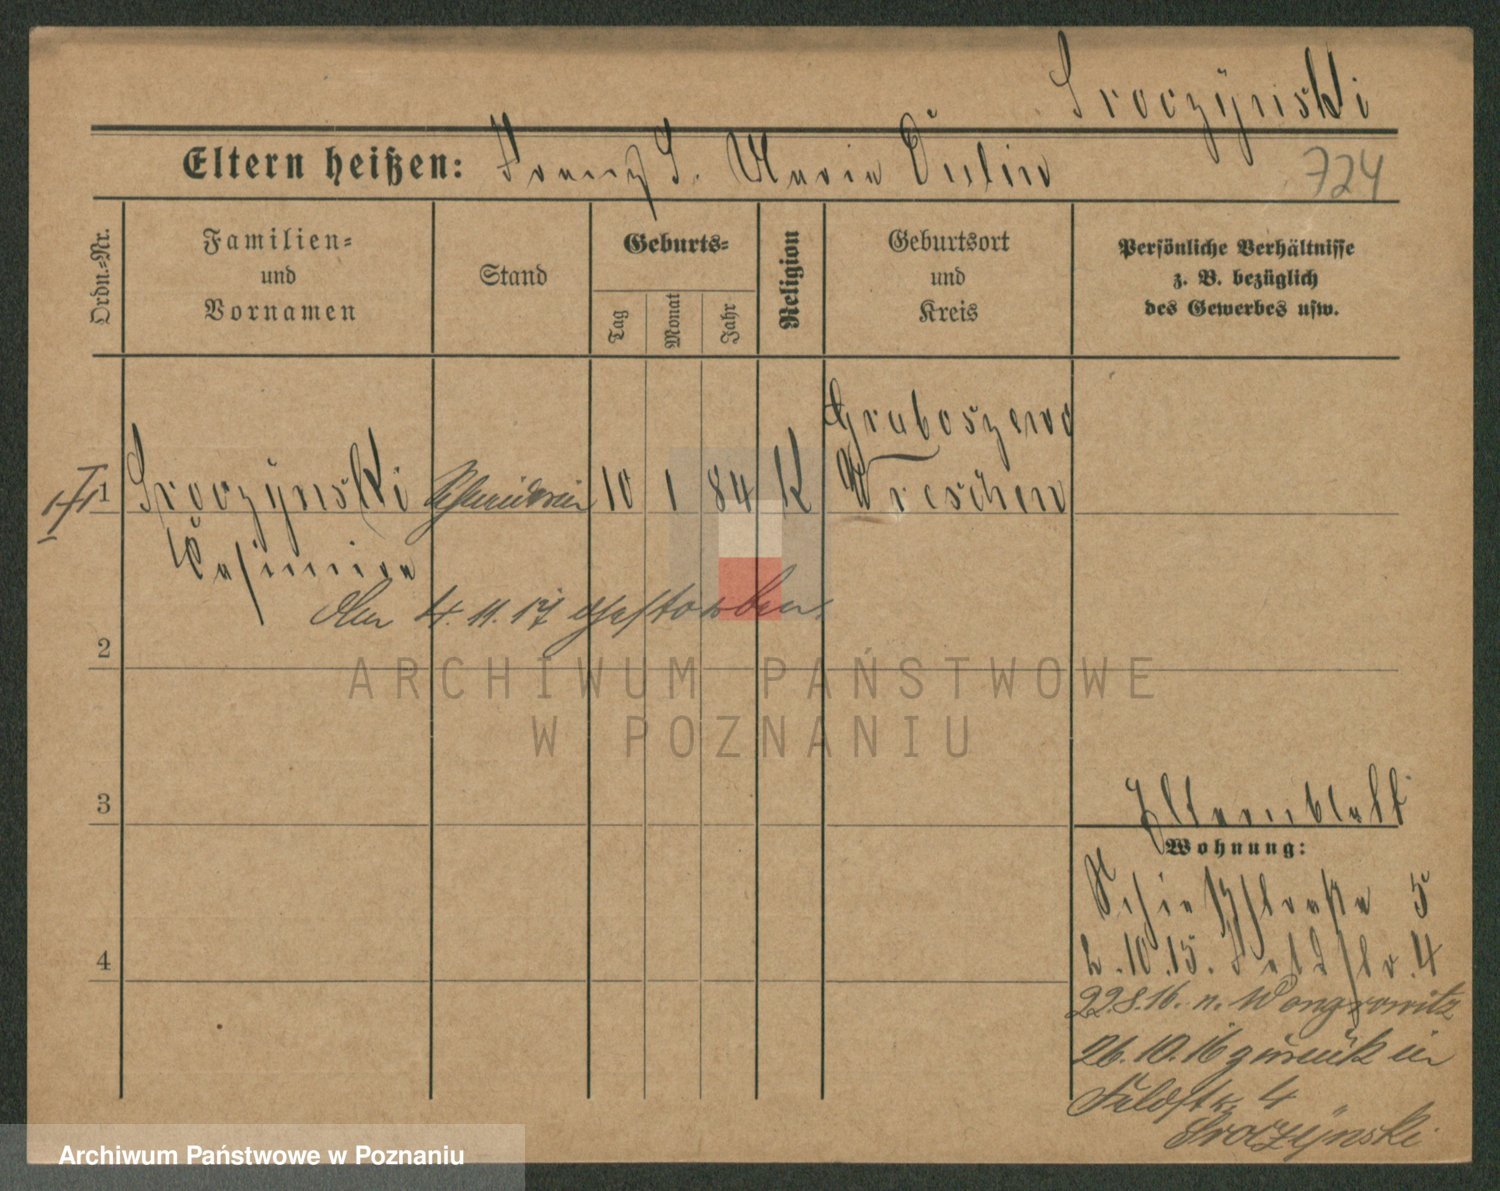 Sroczyński
Eltern heißen: Franz S. Maria
724
Ordn.=Nr.
Familien=
und
Vornamen
Stand
Geburts=
Tag
Monat
Jahr
Religion
Geburtsort
und
Kreis
Persönliche Verhältnisse
z. B. bezüglich
des Gewerbes usw.
1
Sroczyński
Casimira
Schneiderin
10
1
84
K
Graboszewo
Wreschen
den 4. 11. 17 gestorben.
2
ARCHIWUM PAŃSTWOWE
W POZNANIU
3
4
Elternblatt
Wohnung:
Schießstraße 5
2.10.15. Feldstr. 4
22.8.16. n. Wongrowitz
26.10.16 zurück in
Feldstr. 4
Sroczynski
Archiwum Państwowe w Poznaniu